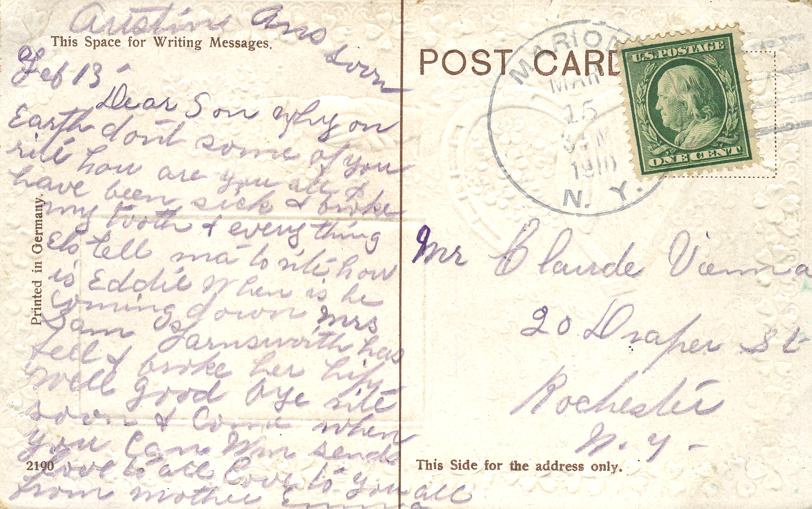 Austins Ans soon
This Space for Writing Messages.
Feb 13
Dear Son why on
Earth dont some of you
rite how are you all I
have been sick & broke
my tooth & everything
Els tell ma to rite how
is Eddie when is he
coming down Mrs
Sam Farnsworth has
fell & broke her hipp
well good bye rite
soon & Come when
you Can Wm sends
Love to all Love to you all
from mother Emma
Printed in Germany.
2190
POST CARD
MARION
MAR
15
1910
N. Y.
U.S. POSTAGE
ONE CENT
Mr Claude Vienna
20 Draper St
Rochester
N. Y.
This Side for the address only.